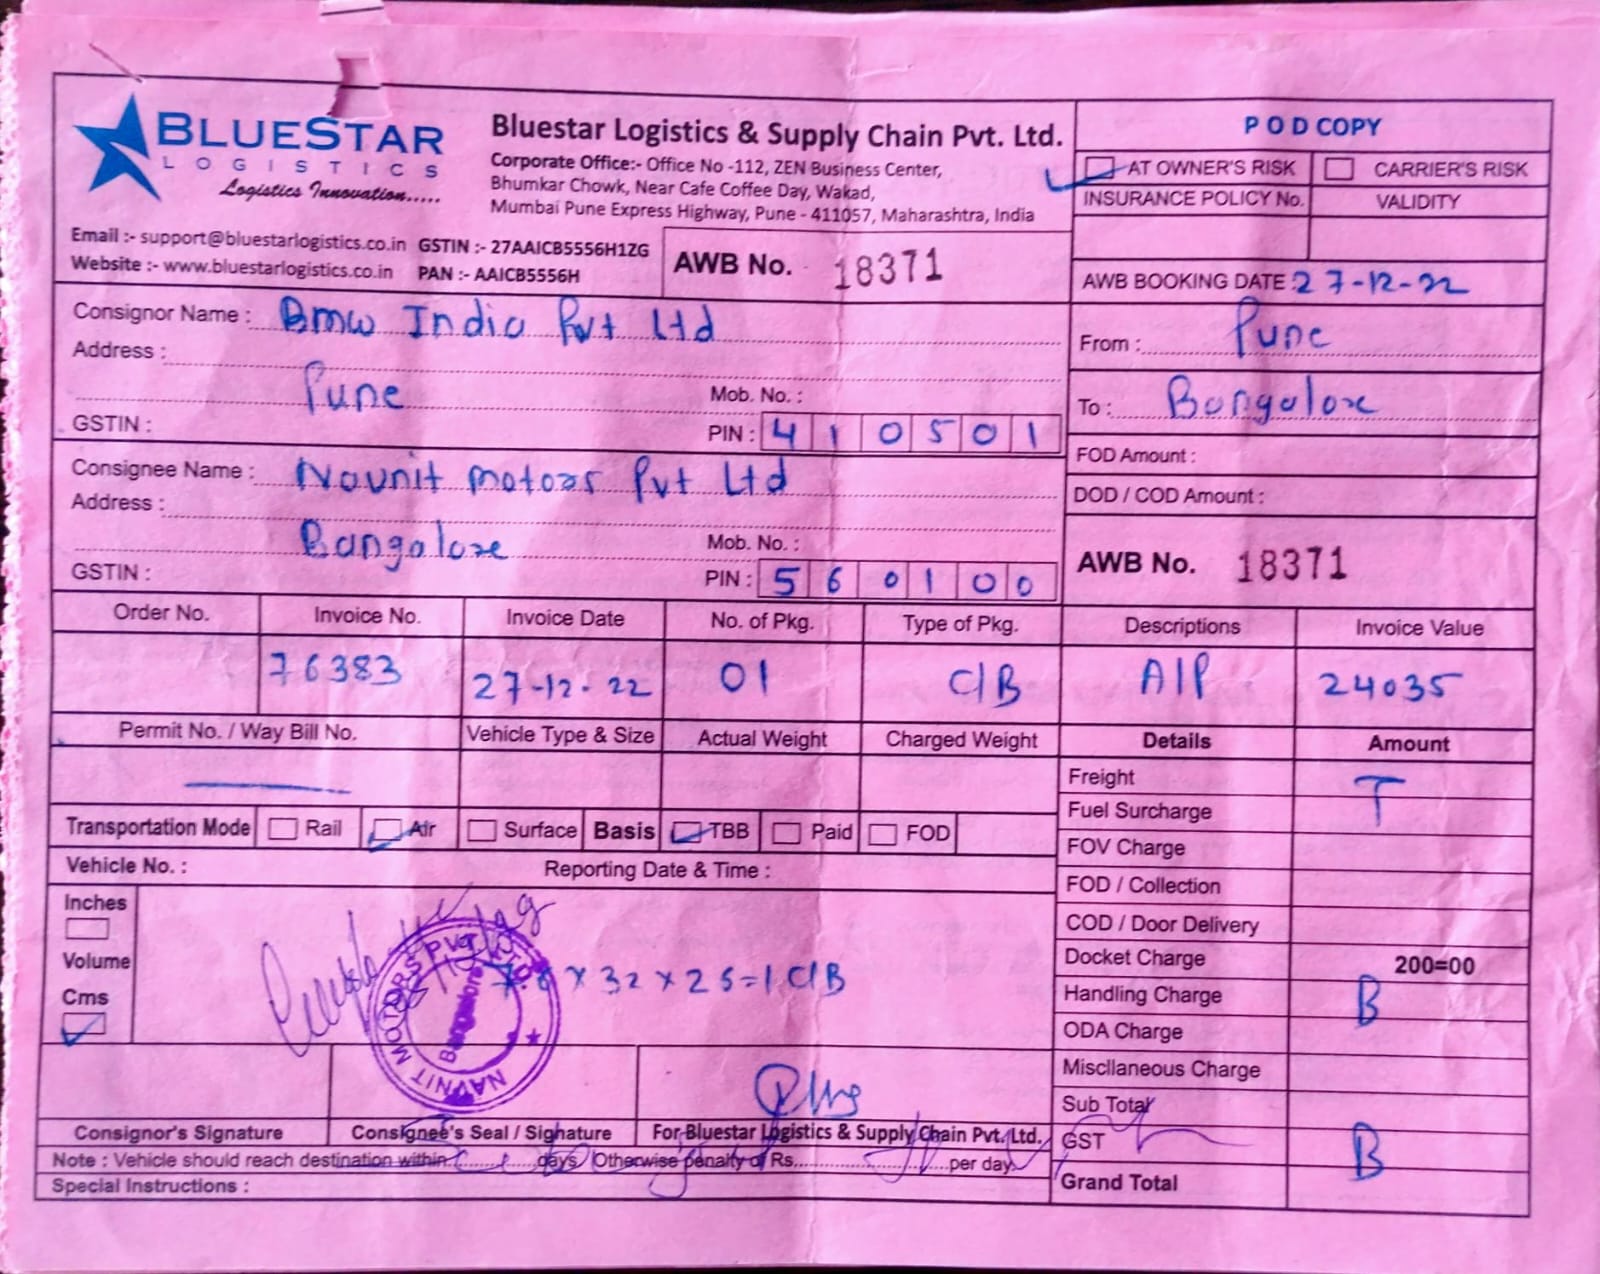 BLUESTAR
LOGISTICS
Logistics Innovation.....
Bluestar Logistics & Supply Chain Pvt. Ltd.
Corporate Office:- Office No -112, ZEN Business Center,
Bhumkar Chowk, Near Cafe Coffee Day, Wakad,
Mumbai Pune Express Highway, Pune - 411057, Maharashtra, India
Email :- support@bluestarlogistics.co.in GSTIN :- 27AAICB5556H1ZG
Website :- www.bluestarlogistics.co.in PAN :- AAICB5556H
AWB No. 18371
POD COPY
AT OWNER'S RISK CARRIER'S RISK
INSURANCE POLICY No. VALIDITY
AWB BOOKING DATE : 27-12-22
Consignor Name : Bmw India Pvt Ltd
Address :
Pune Mob. No. :
GSTIN : PIN : 410501
From : Pune
To : Bangalore
FOD Amount :
DOD / COD Amount :
Consignee Name : Navnit motors Pvt Ltd
Address :
Bangalore Mob. No. :
GSTIN : PIN : 560100
AWB No. 18371
Order No. Invoice No. Invoice Date No. of Pkg. Type of Pkg. Descriptions Invoice Value
76383 27-12-22 01 C/B A/P 24035
Permit No. / Way Bill No. Vehicle Type & Size Actual Weight Charged Weight Details Amount
Freight T
Fuel Surcharge
Transportation Mode Rail Air Surface Basis TBB Paid FOD
FOV Charge
Vehicle No. : Reporting Date & Time :
FOD / Collection
COD / Door Delivery
Docket Charge 200=00
Handling Charge B
ODA Charge
Miscllaneous Charge
Sub Total
GST B
Grand Total
Inches
Volume
Cms
x 32 x 25=1 C/B
NAVNIT MOTORS PVT. LTD.
Bangalore
Consignor's Signature Consignee's Seal / Signature For Bluestar Logistics & Supply Chain Pvt. Ltd.
Note : Vehicle should reach destination within............days. Otherwise penalty of Rs..............................per day.
Special Instructions :